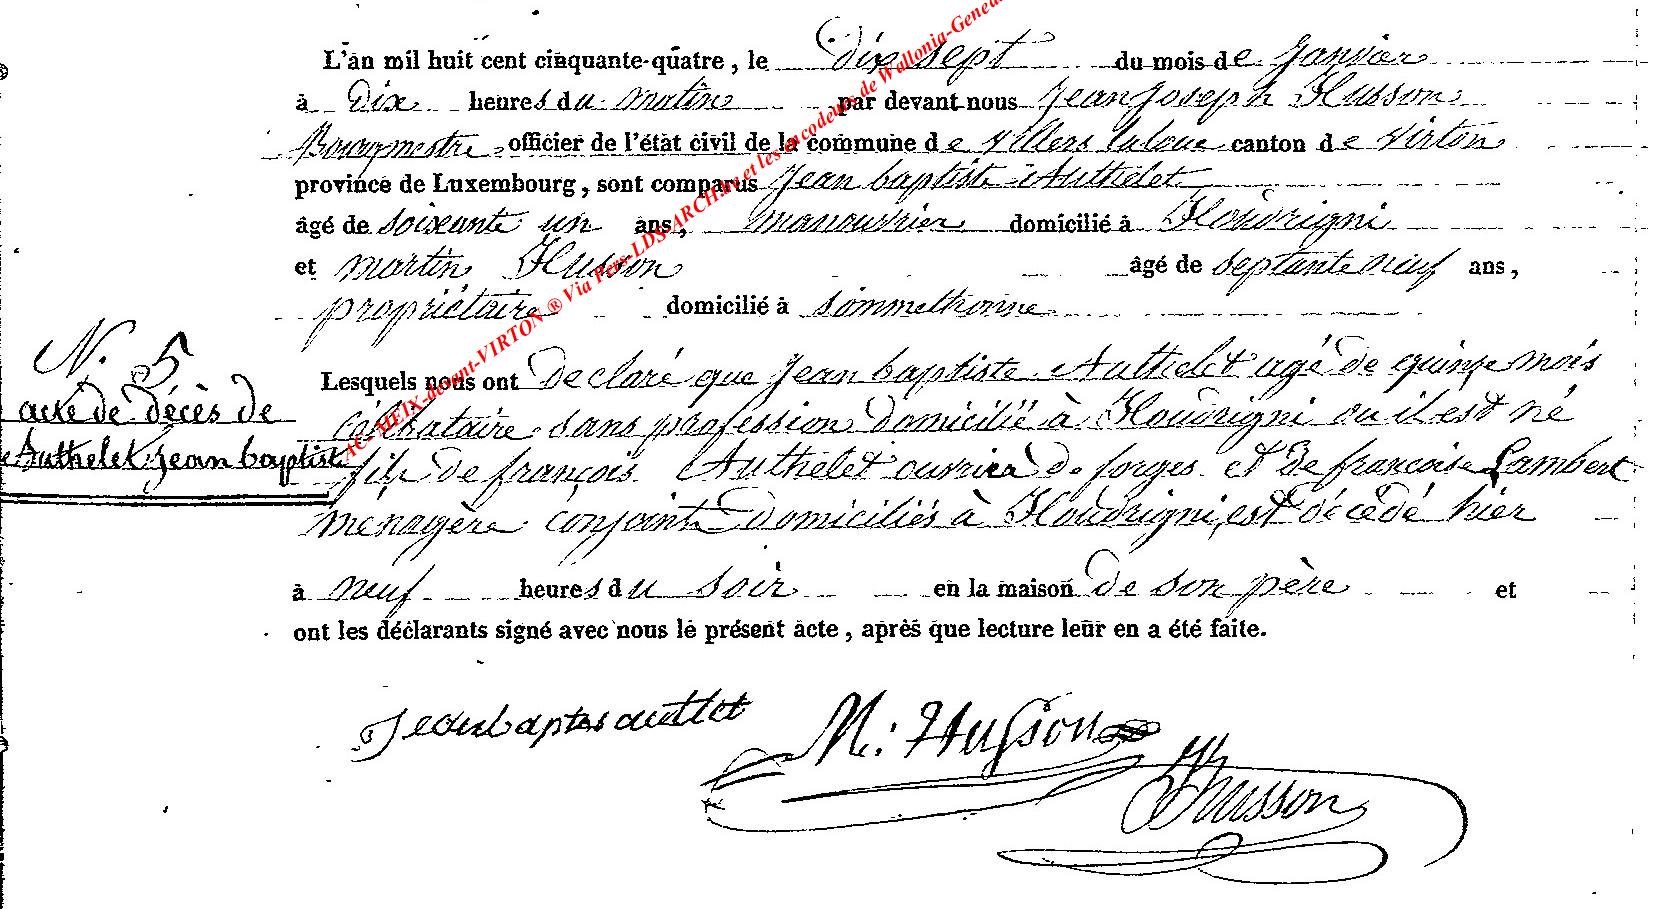 L'an mil huit cent cinquante-quatre, le dix sept du mois de Janvier
à dix heures du matin par devant nous Jean Joseph Husson
Bourgmestre officier de l'état civil de la commune de Villers laloue canton de Virton
province de Luxembourg, sont comparus Jean baptiste Authelet
âgé de soixante un ans, manouvrier domicilié à Houdrigni
et martin Husson âgé de septante neuf ans,
propriétaire domicilié à sommethonne
N. 5
acte de décès de
Authelet Jean baptiste
Lesquels nous ont declaré que Jean baptiste Authelet agé de quinze mois
célibataire sans profession domicilié à Houdrigni ou il est né
fils de françois Authelet ouvrier de forges et de francoise Lambert
menagère conjoints domiciliés à Houdrigni, est décédé hier
à neuf heures du soir en la maison de son père et
ont les déclarants signé avec nous le présent acte, après que lecture leur en a été faite.
Jeanbaptes autlet
M: Husson
JJhusson
AC-MEIX-devant-VIRTON ® Via Pers-LDS-ARCH.be et les encodeurs de Wallonia-Genea